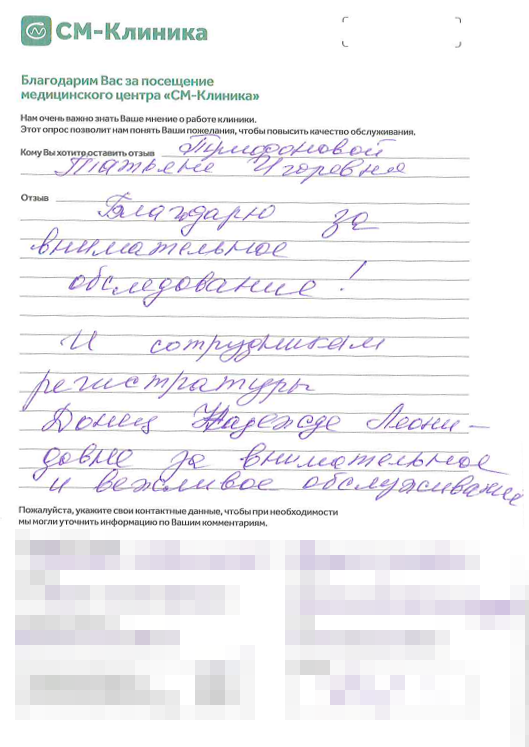 СМ-Клиника
Благодарим Вас за посещение
медицинского центра «СМ-Клиника»
Нам очень важно знать Ваше мнение о работе клиники.
Этот опрос позволит нам понять Ваши пожелания, чтобы повысить качество обслуживания.
Кому Вы хотите оставить отзыв
Татьяне Игоревне
Отзыв Благодарю за
внимательное
обследование!
И сотрудникам
регистратуры
Донец Надежде Леони-
довне за внимательное
и вежливое обслуживание
Пожалуйста, укажите свои контактные данные, чтобы при необходимости
мы могли уточнить информацию по Вашим комментариям.